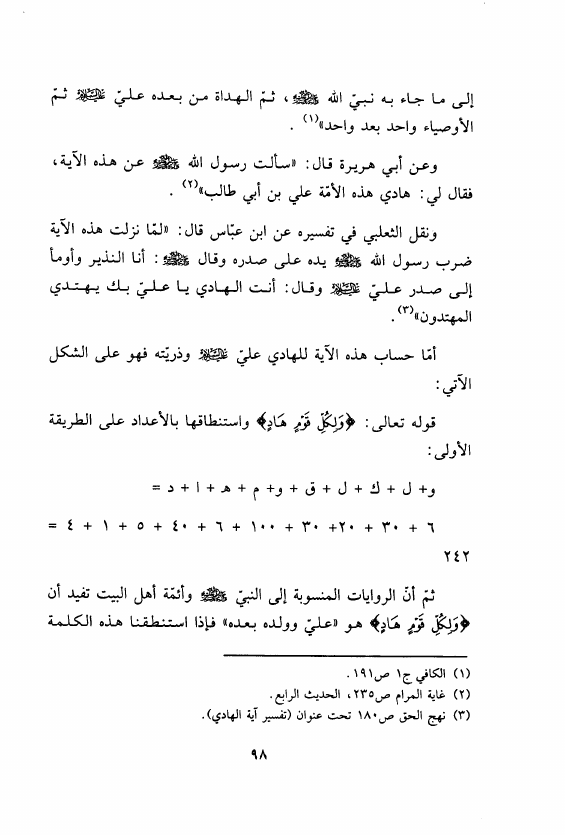 إلى ما جاء به نبيّ الله ﷺ، ثمّ الهداة من بعده عليّ عليه السلام ثمّ
الأوصياء واحد بعد واحد»(١) .
وعن أبي هريرة قال: «سألت رسول الله ﷺ عن هذه الآية،
فقال لي: هادي هذه الأمّة علي بن أبي طالب»(٢) .
ونقل الثعلبي في تفسيره عن ابن عبّاس قال: «لمّا نزلت هذه الآية
ضرب رسول الله ﷺ يده على صدره وقال ﷺ: أنا النذير وأومأ
إلى صدر عليّ عليه السلام وقال: أنت الهادي يا عليّ بك يهتدي
المهتدون»(٣).
أمّا حساب هذه الآية للهادي عليّ عليه السلام وذريّته فهو على الشكل
الآتي:
قوله تعالى: ﴿وَلِكُلِّ قَوْمٍ هَادٍ﴾ واستنطاقها بالأعداد على الطريقة
الأولى:
و+ ل + ك + ل + ق + و+ م + هـ + ا + د =
٦ + ٣٠ + ٢٠+ ٣٠ + ١٠٠ + ٦ + ٤٠ + ٥ + ١ + ٤ =
٢٤٢
ثمّ أنّ الروايات المنسوبة إلى النبيّ ﷺ وأئمّة أهل البيت تفيد أن
﴿وَلِكُلِّ قَوْمٍ هَادٍ﴾ هو «عليّ وولده بعده» فإذا استنطقنا هذه الكلمة
(١) الكافي ج١ ص١٩١.
(٢) غاية المرام ص٢٣٥، الحديث الرابع.
(٣) نهج الحق ص١٨٠ تحت عنوان (تفسير آية الهادي).
٩٨